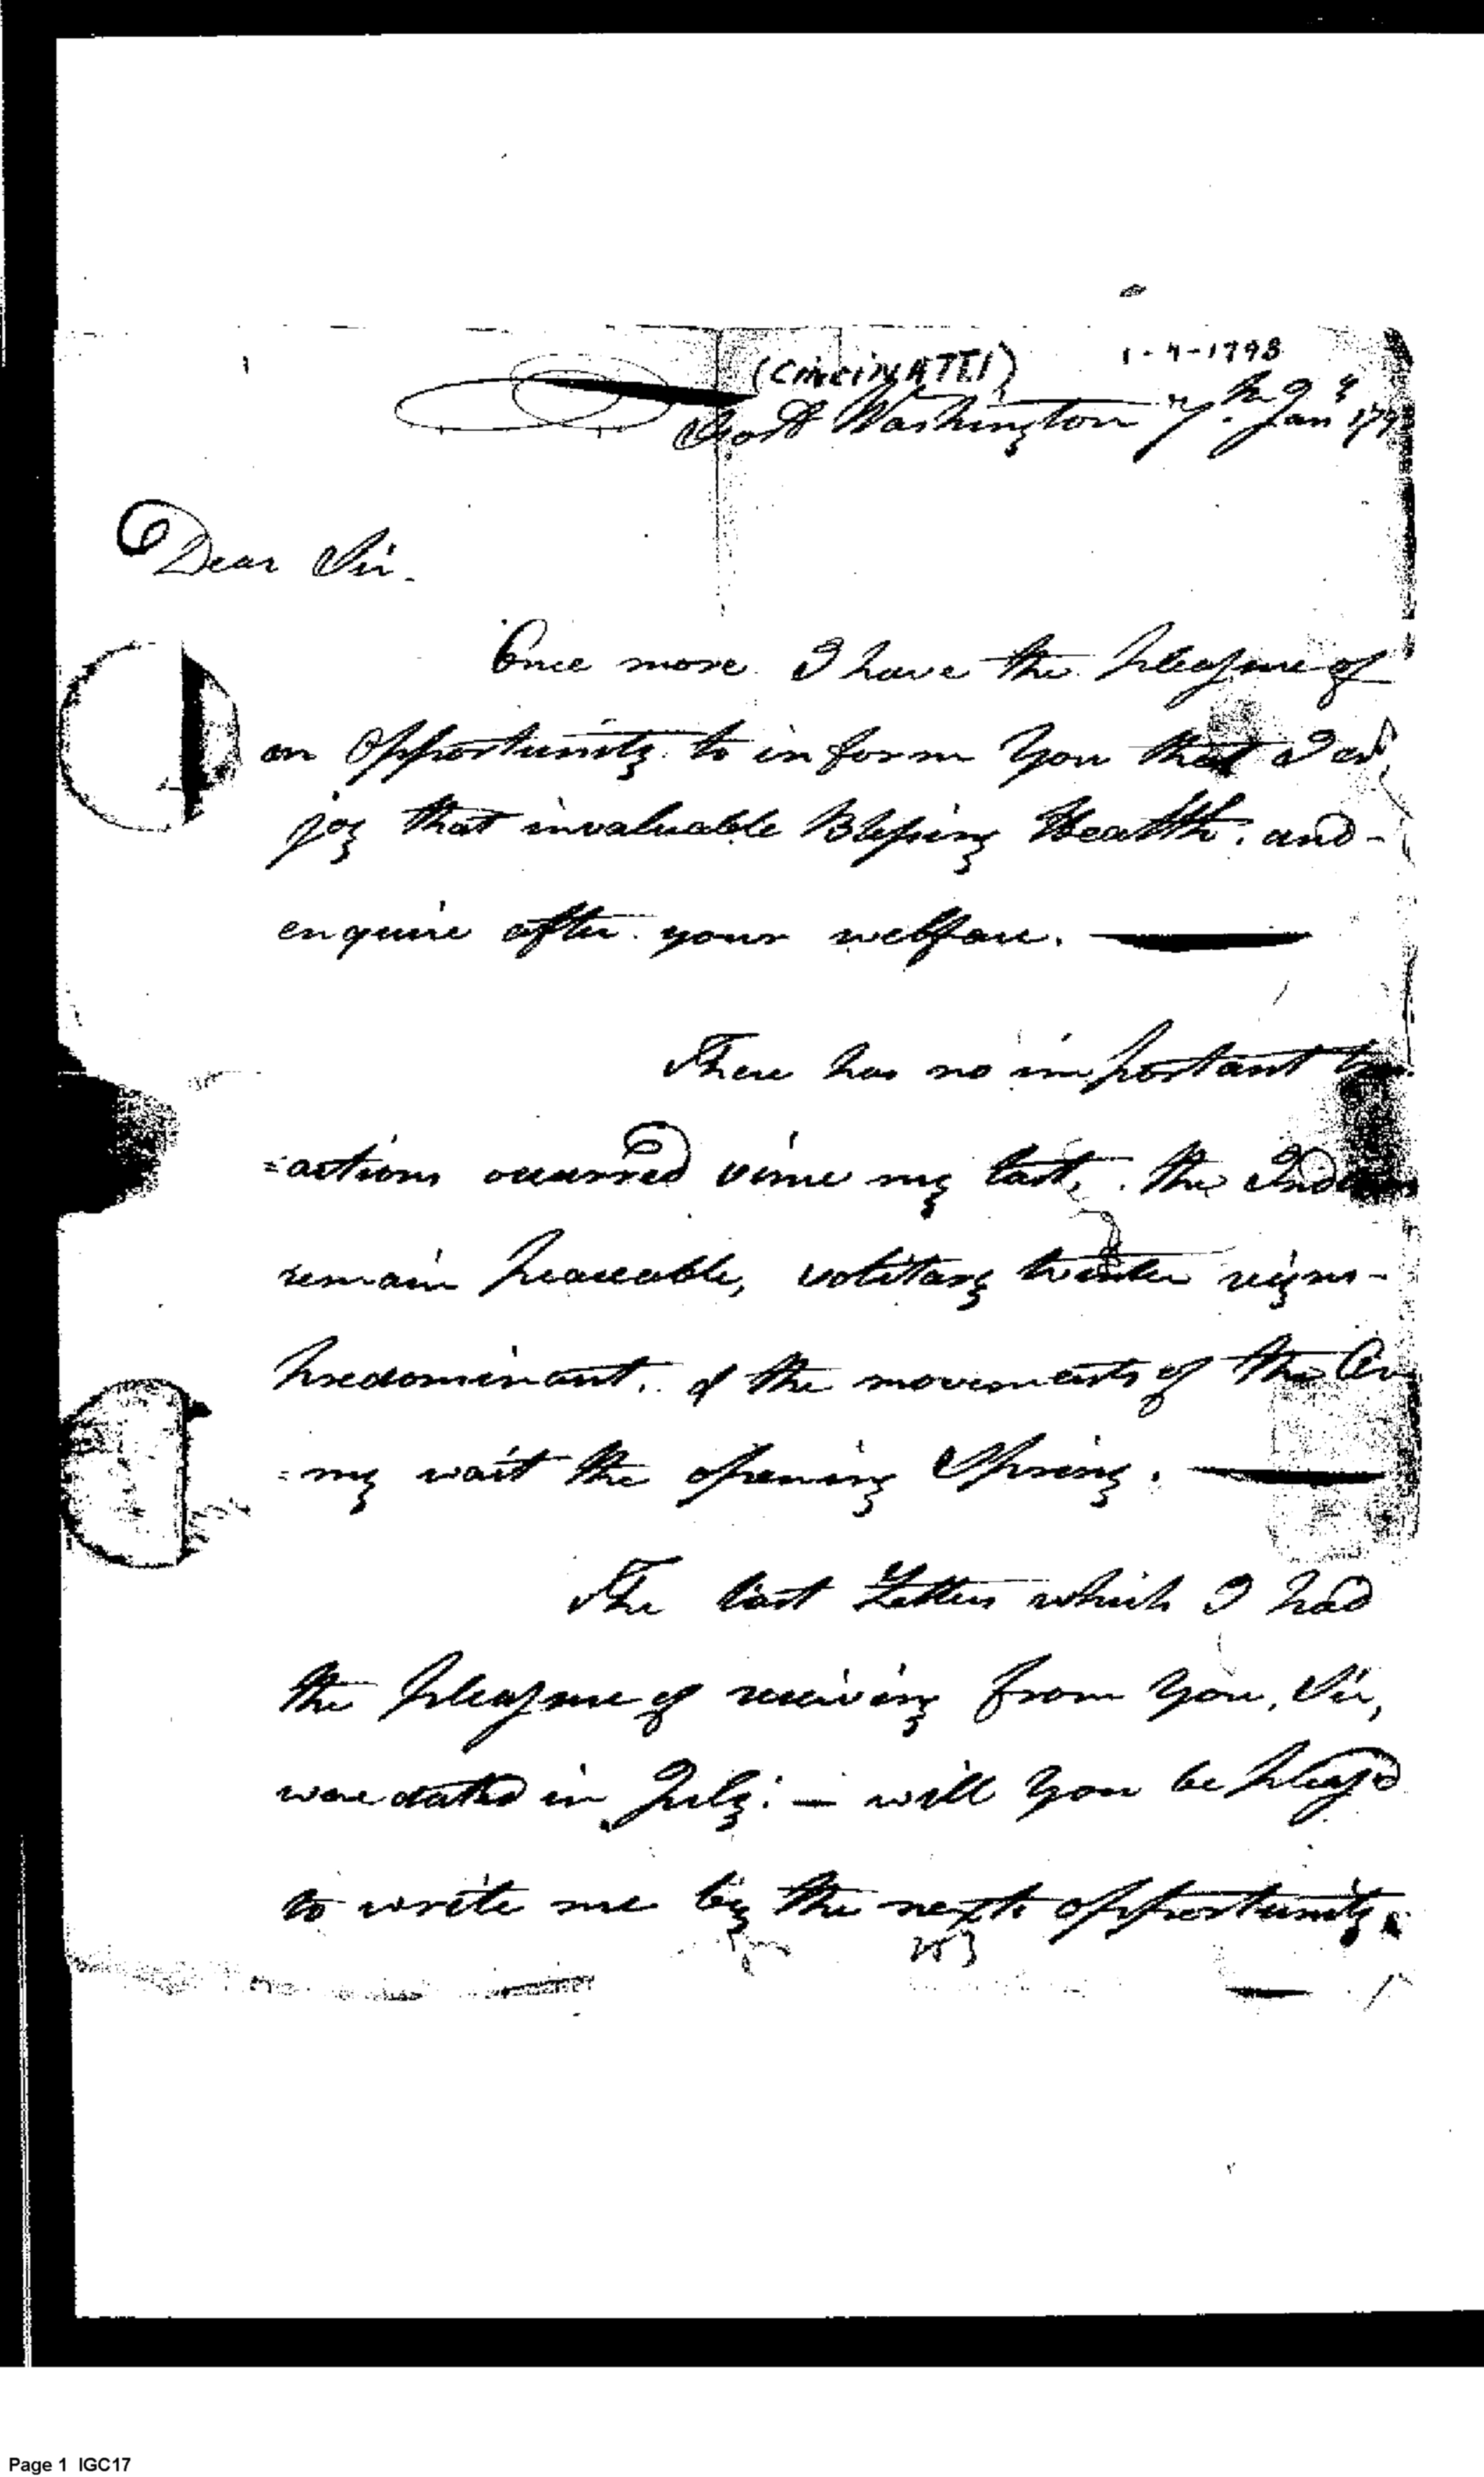 (CINCINATTI) 1-4-1793
Fort Washington 7th Jany 179
Dear Sir.
Once more I have the pleasure of
an Opportunity to inform You that I en
joy that invaluable Blessing Health, and-
enquire after your welfare.
There has no important
=actions occurred since my last, the
remain peaceable, solitary winter reigns-
predominant, & the movements of the Ar
=my wait the opening Spring.
The last Letters which I had
the pleasure of receiving from You, Sir,
were dated in July: — will You be pleas'd
to write me by the next opportunity.
253
Page 1 IGC17